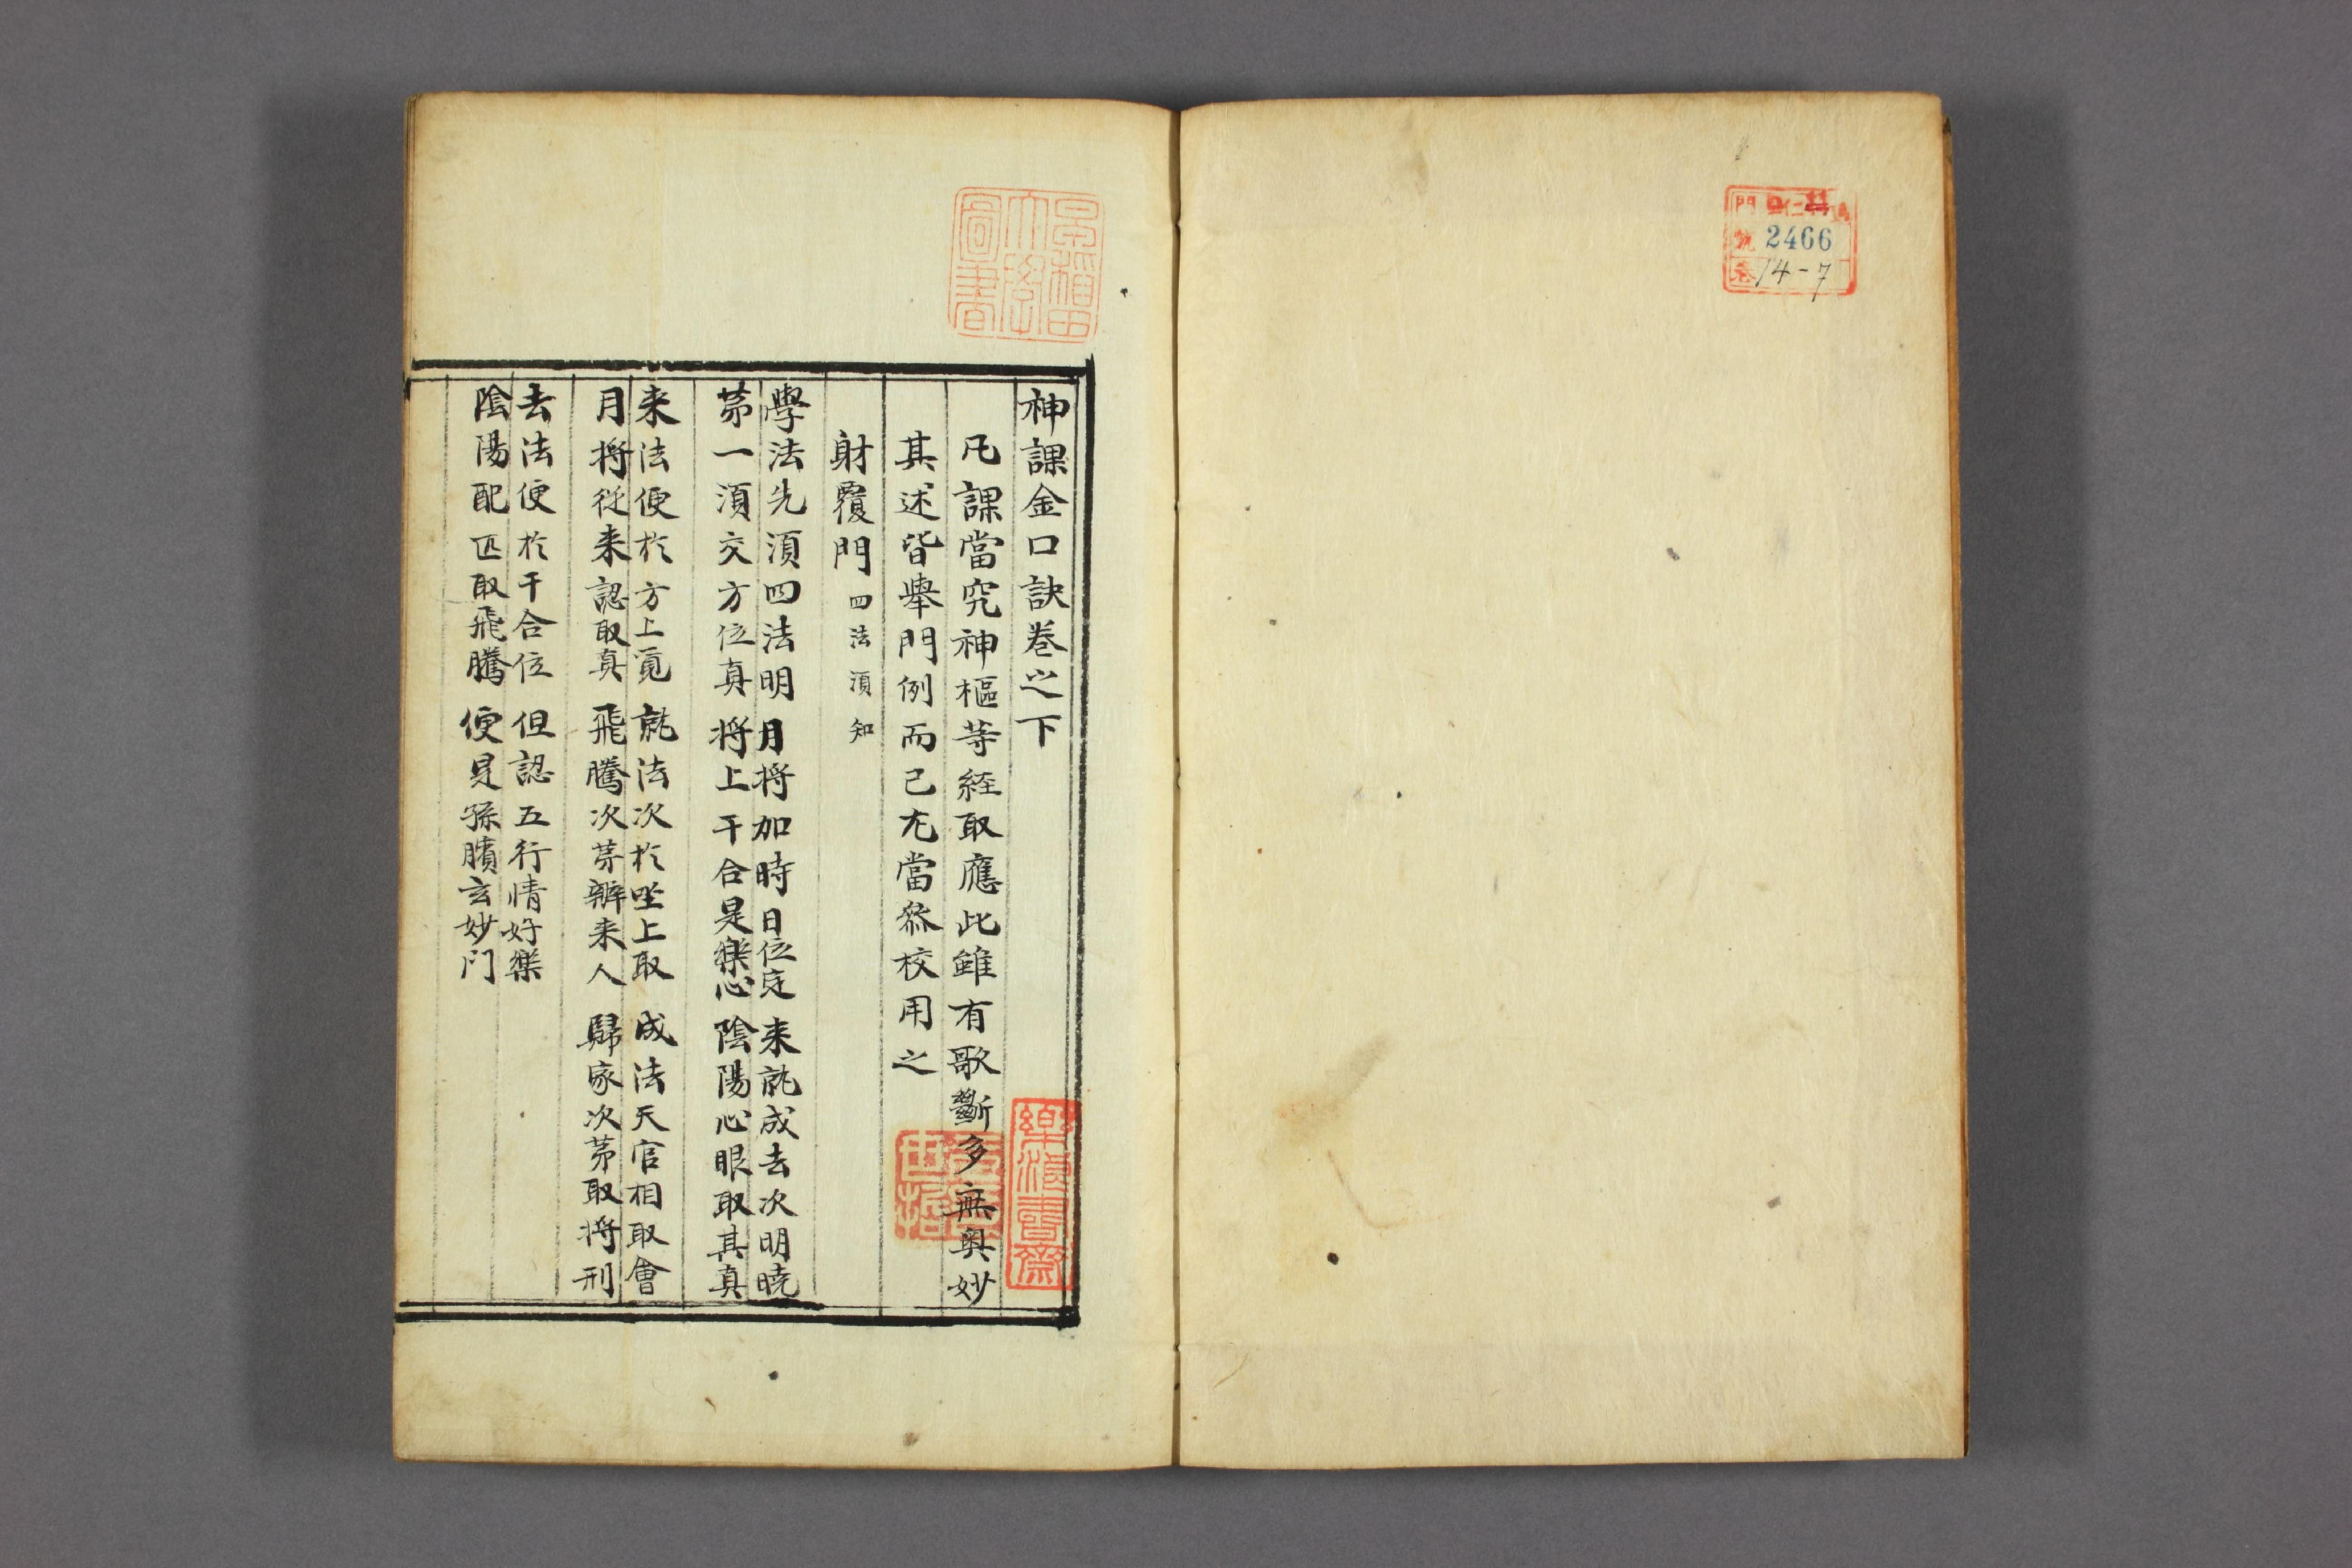 門
號 2466
卷 14-7
早稻田
大學
圖書
神課金口訣巻之下
凡課當究神樞等経取應此雖有歌斷多無奥妙
其述皆舉門例而已尤當叅校用之
射覆門 四法湏知
學法先湏四法明 月将加時日位定 来就成去次明曉
苐一湏交方位真 将上干合是樂心 陰陽心眼取其真
来法便於方上覓 就法次於坐上取 成法天官相取會
月将従来認取真 飛騰次苐辨来人 歸家次苐取将刑
去法便於干合位 但認五行情好樂
陰陽配匹取飛騰 便是孫臏玄妙門